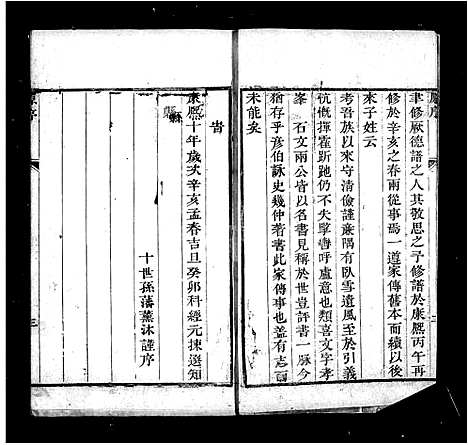 原序
聿修厥德譜之人其敬思之予修譜於康熙丙午再
修於辛亥之春兩從事焉一道家傳舊本而續以後
來子姓云
考吾族以來守清儉謹廉隅有臥雪遺風至於引義
忼慨揮霍跅跎仍不失孳孳呼盧意也類喜文字孝
峯石文兩公皆以名書見稱於世豈評書一
猶存乎彥伯詠史幾仲著書此家傳事也蓋有志而
未能矣
二
旹
康熙十年歲次辛亥孟春吉旦癸卯科經元揀選知
縣
十世孫藩薰沐謹序
原序
三